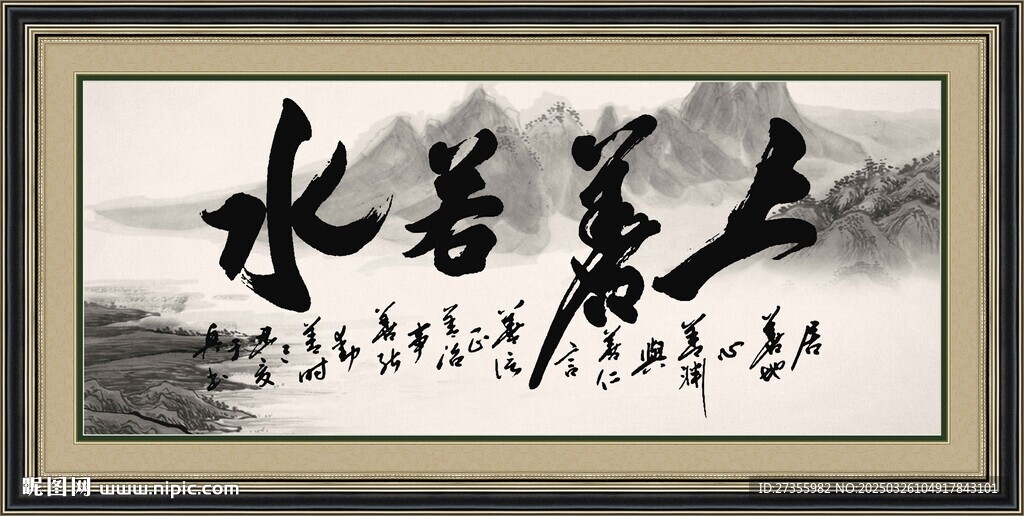 上善若水
居
善地
心
善渊
與
善仁
言
善信
正
善治
事
善能
動
善时
昵图网 www.nipic.com
ID:27355982 NO:20250326104917843101